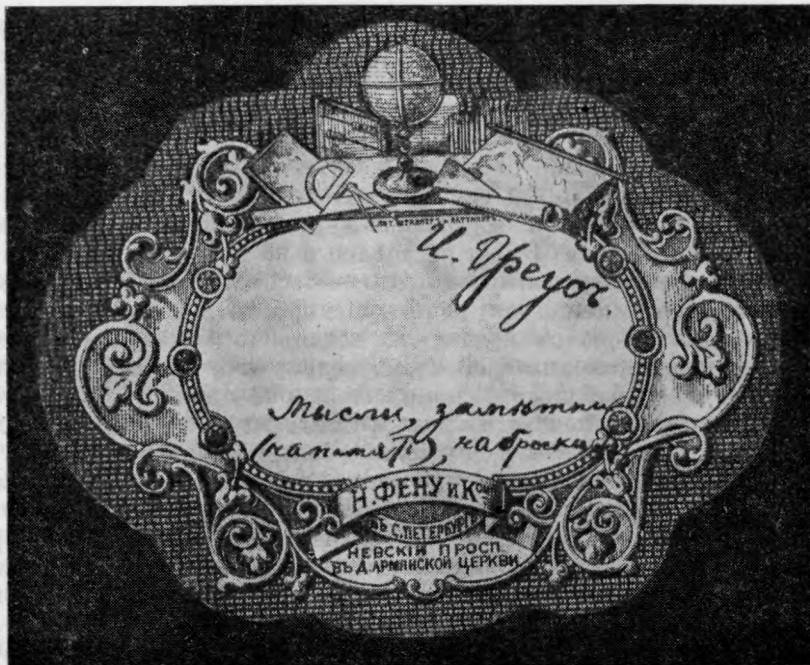 И.
Мысли, замѣтки
(на память), наброски
Н. ФЕНУ и Ко
ВЪ С. ПЕТЕРБУРГѢ
НЕВСКІЙ ПРОСП.
ВЪ Д. АРМЯНСКОЙ ЦЕРКВИ